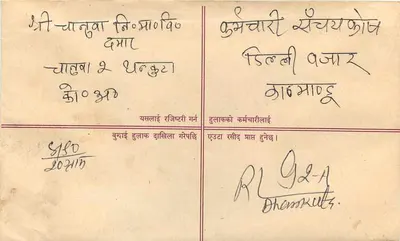 श्री चानुवा नि॰मा॰वि॰
चानुवा २ धनकुटा
को॰अ॰
कर्मचारी सँचय कोष
डिल्ली वजार
का॰मा॰डू
यसलाई रजिष्टरी गर्न
हुलाकको कर्मचारीलाई
बुझाई हुलाक दाखिला गरेपछि
एउटा रसीद प्राप्त हुनेछ।
२० ग्राम
RL 92-A
Dhankuta